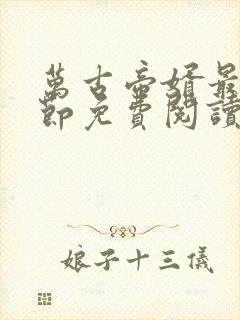 萬古帝婿最
節免費閱讀
娘子十三儀